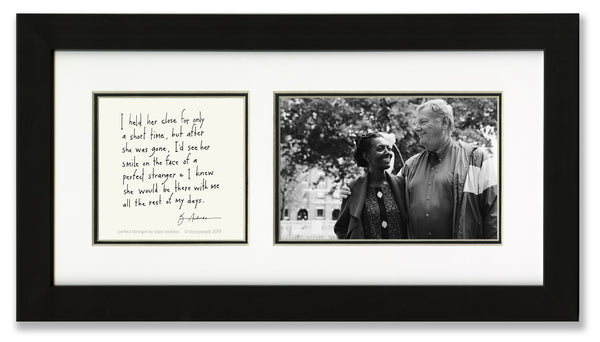 I held her close for only
a short time, but after
she was gone, I'd see her
smile on the face of a
perfect stranger & I knew
she would be there with me
all the rest of my days.
perfect stranger by brian andreas © storypeople 2018